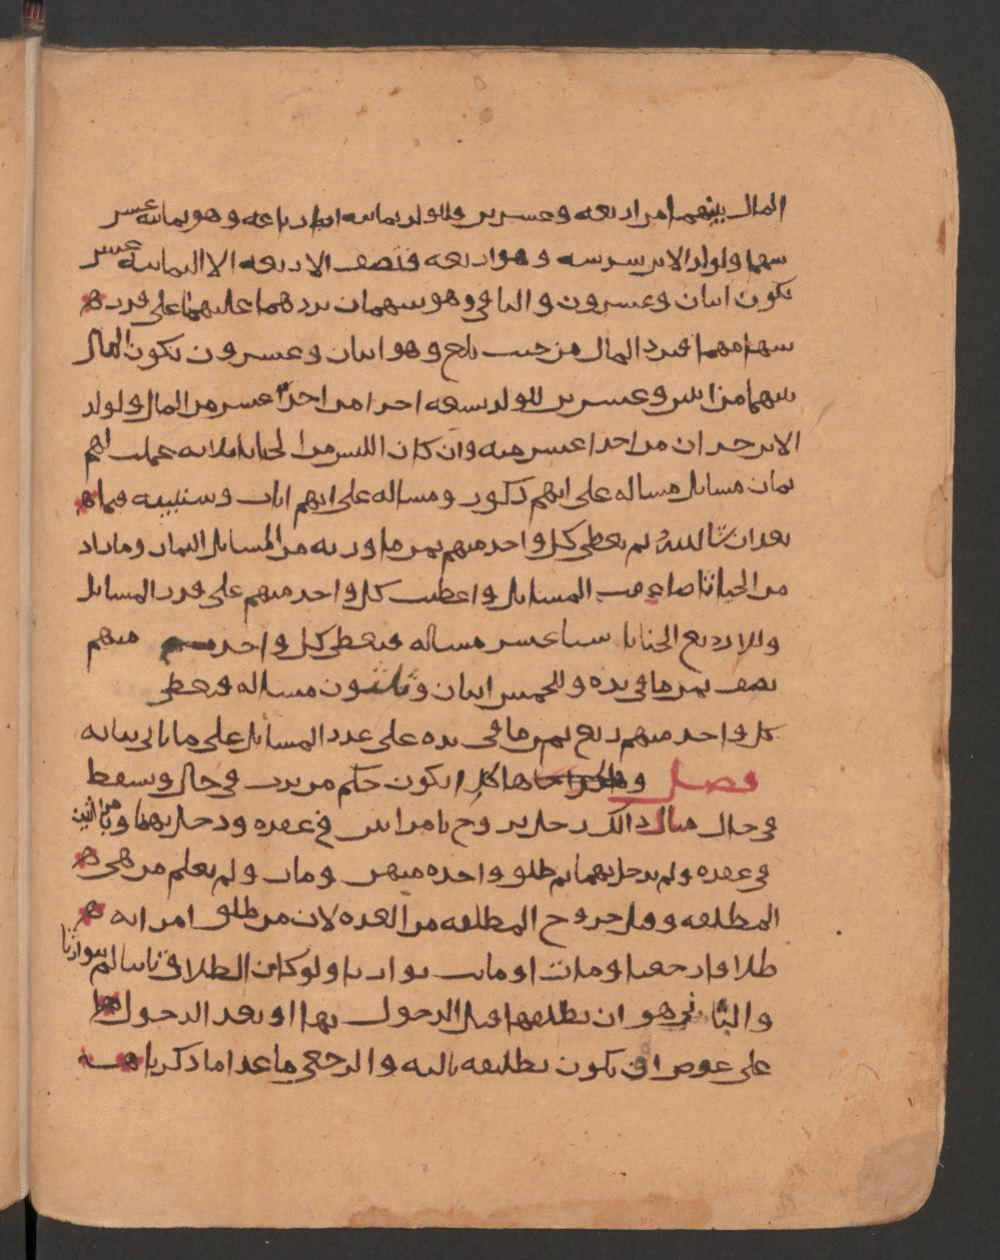 المال بينهما من اربعه وعشرين وللولد ثمانيه اربعه وهو ثمانيه عشر
سهما ولولد الابن سدسه وهو اربعه فنصف الاربعه الا الثمانيه عشر
تكون اثنان وعشرون والباقي وهو سهمان يردهما عليهما على قدر
سهامهما فيرد المال من حيث بلغ وهو اثنان وعشرون يكون المال
بينهما من اثنين وعشرين للولد تسعه اجزا من احد عشر من المال ولولد
الابن جزان من احد اعشر منه وان كان اللبس من الخناثا ثلاثه عملت لهم
ثمان مسايل مساله على انهم ذكور ومساله على انهم اناث وسنبينه
بعد ان شا الله ثم يعطى كل واحد منهم ثمن ما ورثه من المسايل الثمان وما زاد
من الخناثا ضاعفت المسايل واعطيت كل واحد منهم على قدر المسايل
وللاربع الخناثا ستا عشر مساله فيعطى كل واحد منهم
نصف ثمن ما في يده وللخمس اثنان وثلثون مساله فيعطى
كل واحد منهم ربع ثمن ما في يده على عدد المسايل على ما ياتي بيانه
فصل وهاكذا يكون حكم من يرث في حال ويسقط
في حال مثال ذالك رجل تزوج بامراتين في عقده ودخل بهما وباثنتين
في عقده ولم يدخل بهما ثم طلق واحده منهن ومات ولم يعلم من هي
المطلقه وقبل خروج المطلقه من العده لان من طلق امراته
طلاقا رجعيا وماتت او مات توارثا ولو كان الطلاق باينا لم يتوارثا
والباين هو ان يطلقها قبل الدخول بها او بعد الدخول
على عوض او يكون تطليقه ثالثه والرجعي ما عدا ما ذكرنا